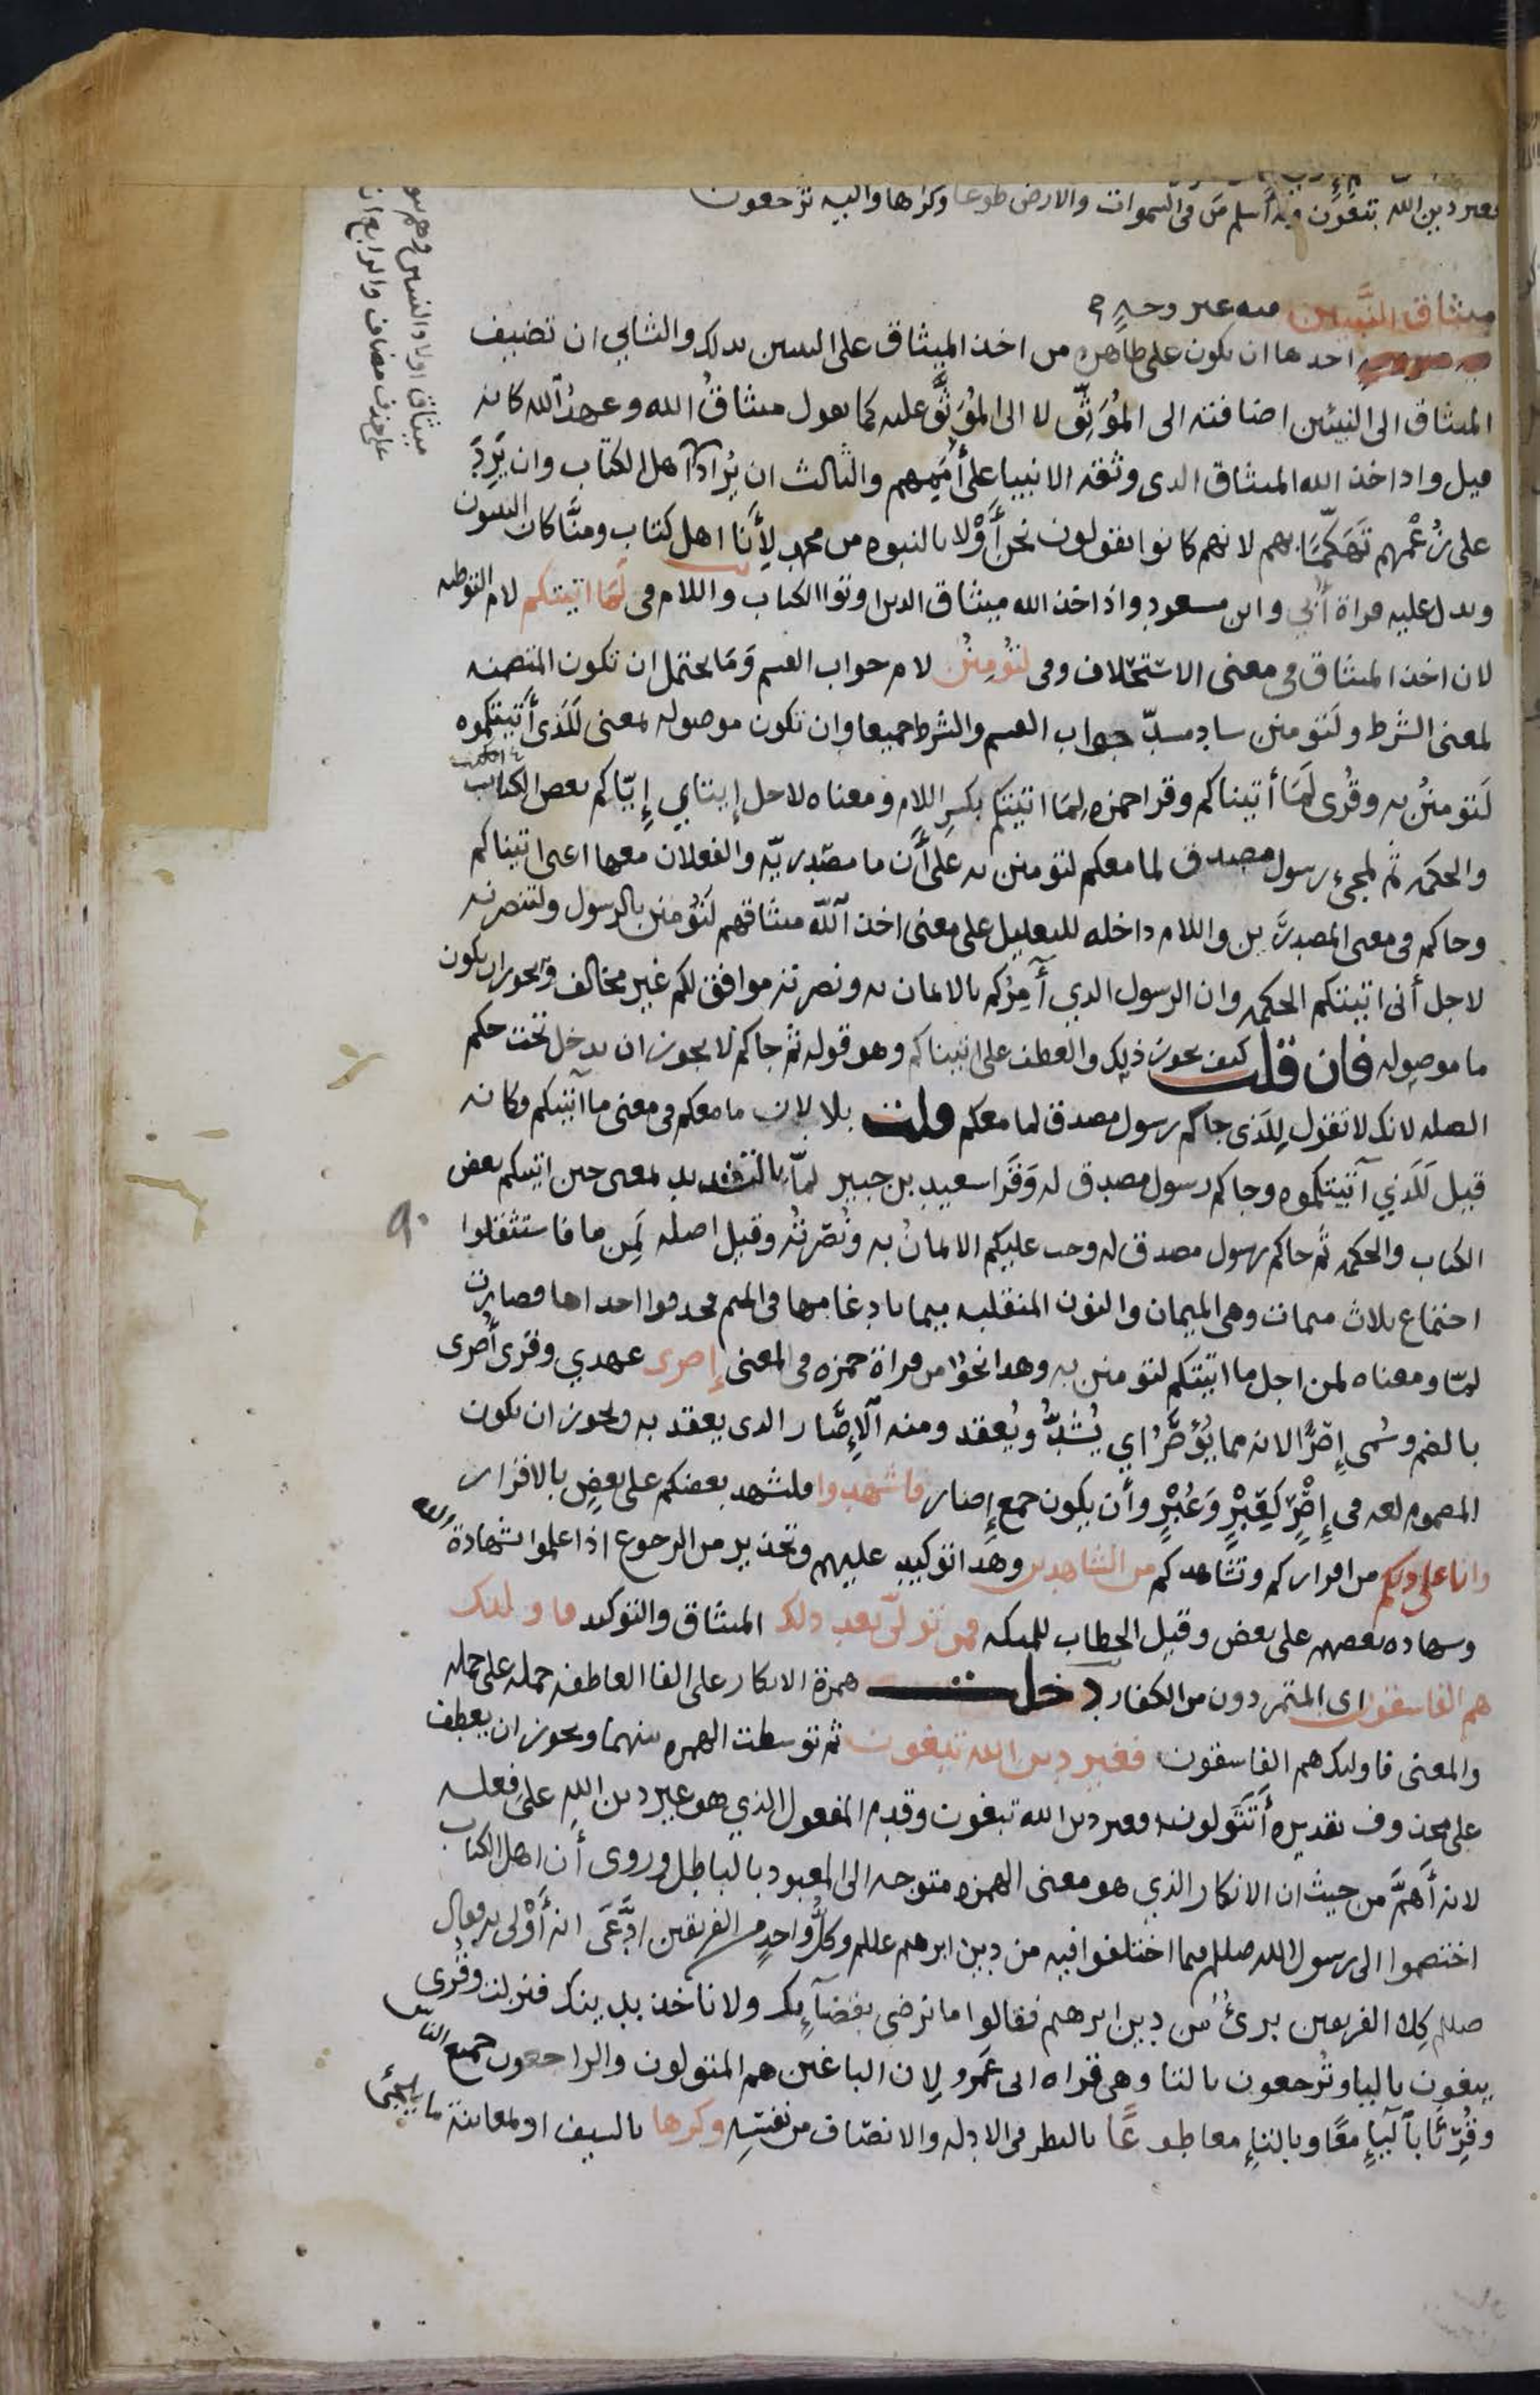 فغير دين الله تبغون وله أسلم من في السموات والارض طوعا وكرها واليه ترجعون
ميثاق النبيين فيه غير وجه
احدها ان يكون على ظاهره من اخذ الميثاق على النبيين بذلك والثاني ان تضيف
الميثاق الى النبيئين اضافته الى المُوَثِّق لا الى المُوَثَّق عليه كما تقول ميثاقُ الله وعهدُ الله كانه
قيل واذ اخذ الله الميثاق الذي وثقه الانبيا على أُمَمِهم والثالث ان يُراد اهل الكتاب وان يَرِدَ
على زُعْمهم تَهَكُّمًا بهم لانهم كانوا يقولون نحن أَوْلا بالنبوه من محمد لِأَنا اهل كتاب ومنَّا كان النبيون
وتدل عليه قراة أُبي وابن مسعود واذ اخذ الله ميثاق الذين اوتوا الكتاب واللام في لَمَا اتيتكم لام التوطيه
لان اخذ الميثاق في معنى الاستحلاف وفي لتؤمِنُن لام جواب القسم وَمَا يحتمل ان تكون المتضمنه
لمعنى الشرط ولَتؤمنن ساد مسدّ جواب القسم والشرط جميعا وان تكون موصوله بمعنى لَلَّذي أَتيتكموه
لَتؤمنُن به وقُرِى لَمَا أتيناكم وقرا حمزه لِمَا اتيتكم بكسرِ اللام ومعناه لاجل إِيتايي إِيّاكم بعض الكتاب
والحكمه ثم لمجيء رسول مصدق لما معكم لتؤمنن به عَلى أَن ما مصدريّه والفعلان معها اعنى اتيناكم
وجاكم في معنى المصدرَين واللام داخله للتعليل على معنى اخذ اللّه ميثاقهم لَتؤمنن بالرسول ولتنصرنه
لاجل أني اتيتكم الحكمه وان الرسول الذي أَمركم بالايمان به ونصرته موافق لكم غير مخالف ويجوز ان يكون
ما موصوله فان قلت كيف يجوز ذلك والعطف على اتيناكم وهو قوله ثم جاكم لا يجوز ان يدخل تحت حكم
الصله لانك لا تقول لِلَّذي جاكم رسول مصدق لما معكم قلت بلا لان ما معكم في معنى ما آتيتكم وكانه
قيل لَلَّذي آتيتكموه وجاكم رسول مصدق له وَقَرا سعيد بن جبير لمّا بالتشديد بمعنى حين اتيتكم بعض
الكتاب والحكمه ثم جاكم رسول مصدق له وجب عليكم الايمانُ به ونُصْرتُه وقيل اصله لَمِن ما فاستثقلوا
٩٠
اجتماع ثلاث ميمات وهي الميمان والنون المنقلبه ميما بادغامها في الميم فحذفوا احداها فصارت
لمّا ومعناه لمن اجل ما اتيتكم لتؤمنن به وهذا نحوٌ من قراة حمزه في المعنى إِصرى عهدي وقرى أُصرى
بالضم وسُمى إِصْرًا لانه مما يُؤْصَرُ اي يُشَدُّ ويُعقد ومنه الْإِصَار الذي يعقد به ويجوز ان يكون
المضموم لغه في إِصْرٍ كَعِبْرٍ وَعُبْرٍ وأن يكون جمع إِصار فاشهدوا فليشهد بعضكم على بعضٍ بالاقرار
وانا على ذلكم من اقراركم وتشاهدكم من الشاهدين وهَذا توكيد عليهم وتحذير من الرجوع اذا علموا شهادة الله
وشهاده بعضهم على بعض وقيل الخطاب للمليكه فمن تولّى بعد ذلك الميثاق والتوكيد فاولئك
هم الفاسقون اى المتمردون من الكفار دخلت همزة الانكار على الفا العاطفه جمله على جمله
والمعنى فاوليك هم الفاسقون فغير دين الله تبغون ثم توسطت الهمزه بينهما ويجوز ان يعطف
على محذوف تقديره أَتَتَولون فغير دين الله تبغون وقدم المفعول الذي هو غير دين الله على فعله
لانه أَهَمُّ من حيث ان الانكار الذي هو معنى الهمزه متوجه الى المعبود بالباطل وروى أن اهل الكتاب
اختصموا الى رسول الله صللم فيما اختلفوا فيه من دين ابرهيم عللم وكلُّ واحدٍ من الفريقين ادَّعَى انه أَوْلى به فقال
صللم كِلا الفريقين برئٌ من دين ابرهيم فقالوا ما نرضى بقضآيك ولا ناخذ بدينك فنزلت وقُرى
يبغون باليا وتُرجعون بالتا وهي قراه ابى عَمرو لان الباغين هم المتولون والراجعون جميع الناس
وقُرِئَا باليآءِ معًا وبالتاءِ معا طوعًا بالنظر في الادله والانصاف من نفسِه وكرها بالسيف او لمعاينة ما يلجئ
ميثاق اولاد النبيين وهم بنو
على حذف مضاف والرابع ان